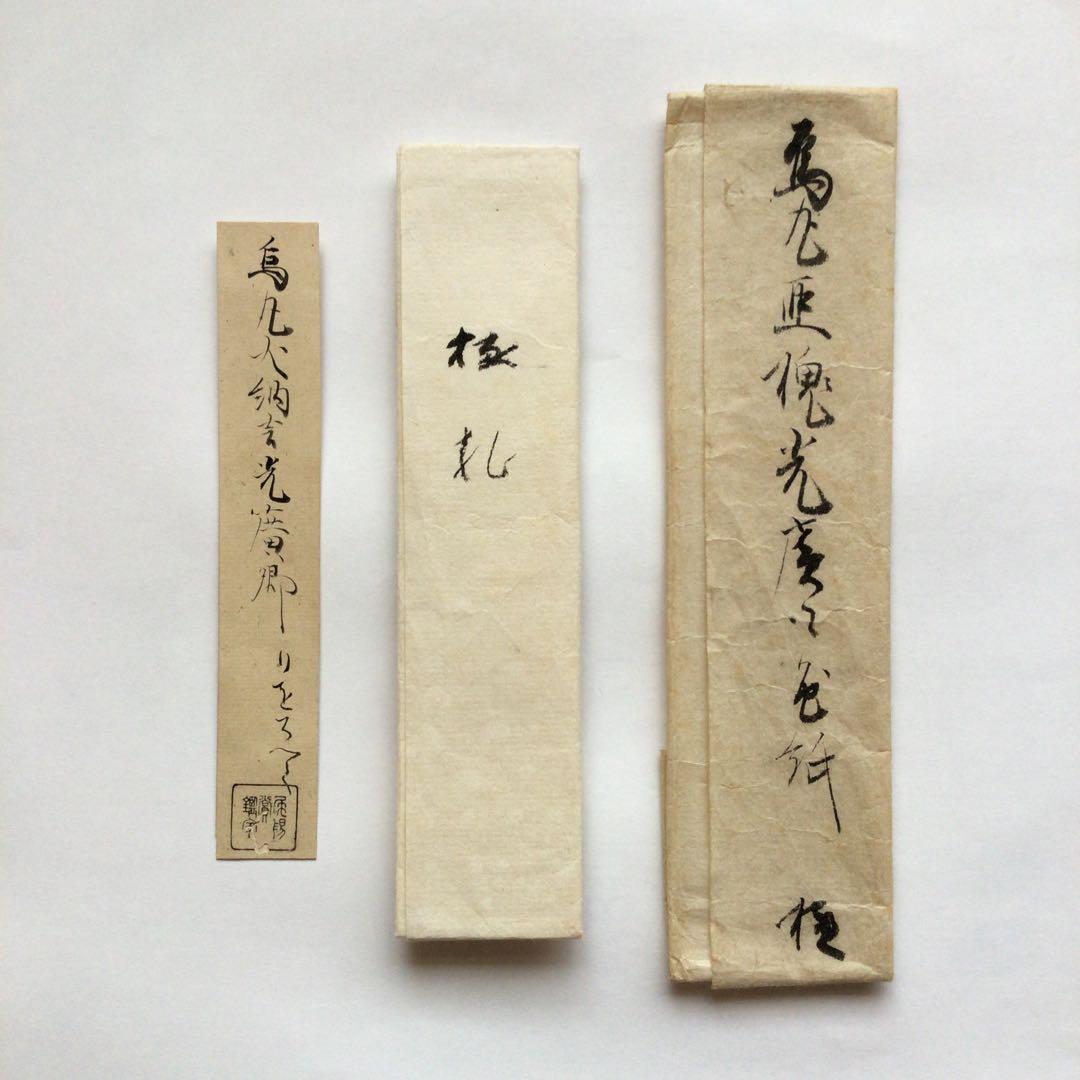 烏丸亜槐光廣卿色紙
極
極札
烏丸大納言光廣卿